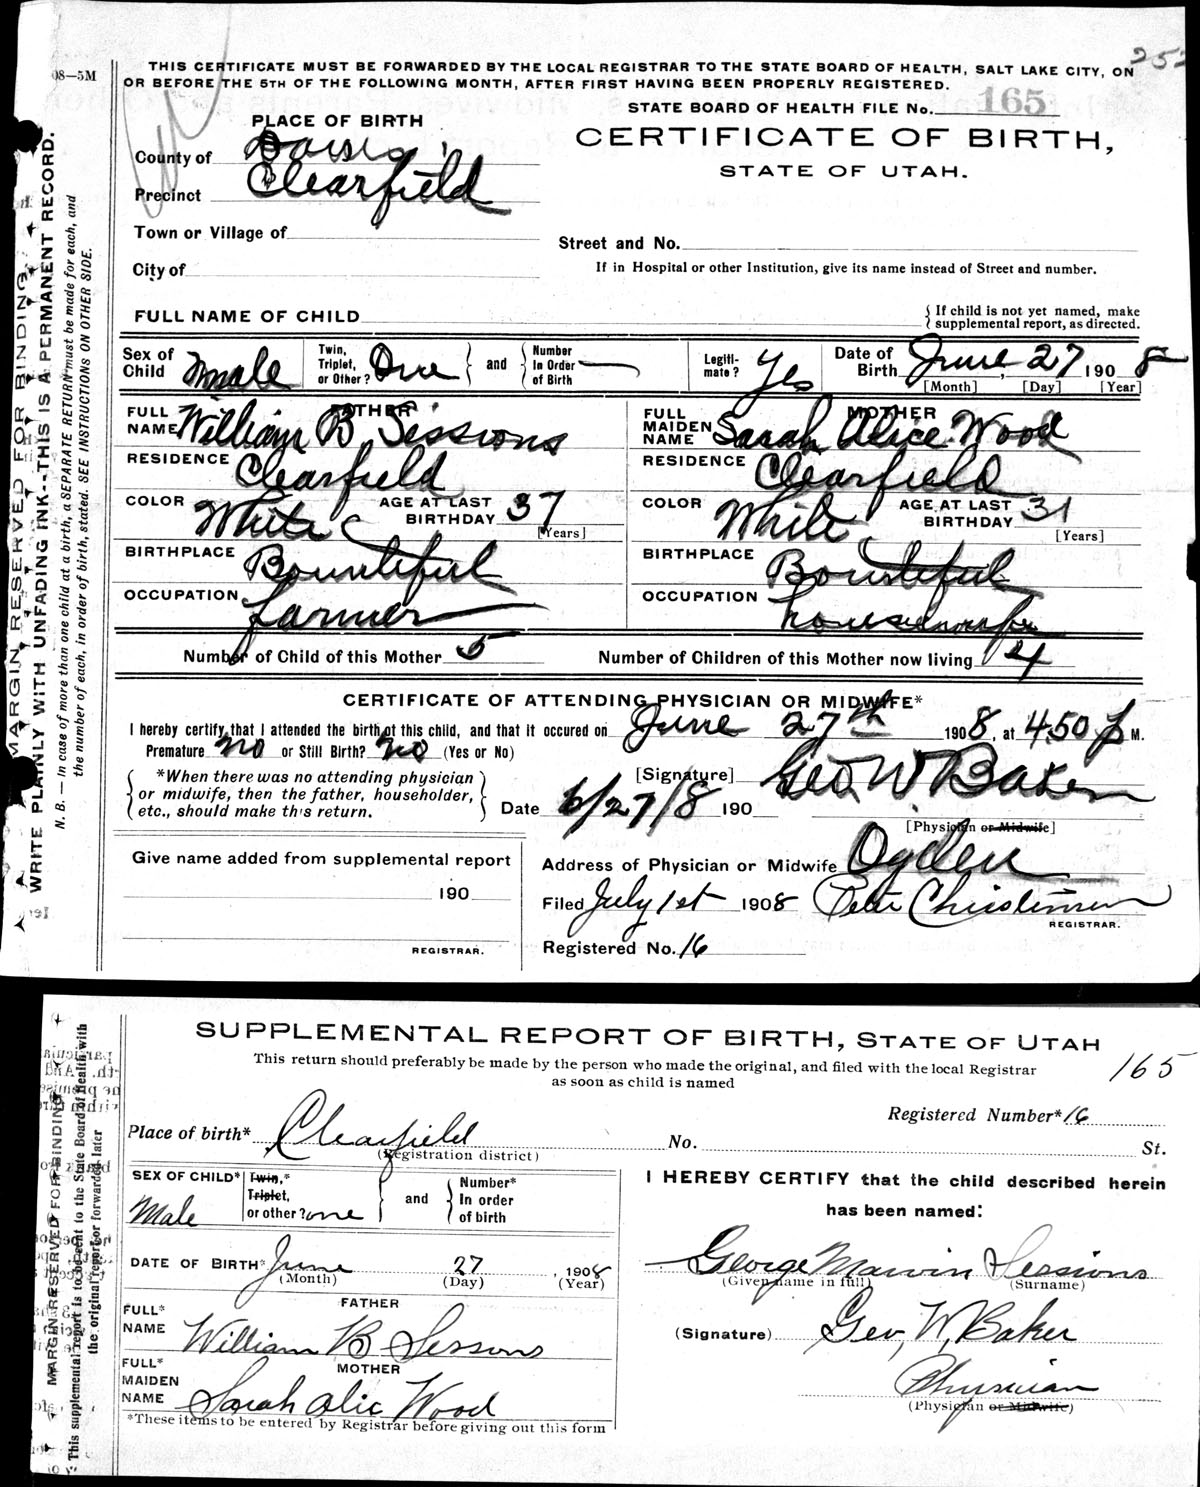 252
08—5M
THIS CERTIFICATE MUST BE FORWARDED BY THE LOCAL REGISTRAR TO THE STATE BOARD OF HEALTH, SALT LAKE CITY, ON
OR BEFORE THE 5TH OF THE FOLLOWING MONTH, AFTER FIRST HAVING BEEN PROPERLY REGISTERED.
STATE BOARD OF HEALTH FILE No. 165
PLACE OF BIRTH
CERTIFICATE OF BIRTH,
STATE OF UTAH.
County of Davis
Precinct Clearfield
Town or Village of
Street and No.
City of
If in Hospital or other Institution, give its name instead of Street and number.
FULL NAME OF CHILD
If child is not yet named, make
supplemental report, as directed.
Sex of Child Male
Twin, Triplet, or Other? One
and
Number In Order of Birth —
Legiti-mate? Yes
Date of Birth June 27 1908
[Month] [Day] [Year]
FATHER
FULL NAME William B. Sessions
RESIDENCE Clearfield
COLOR White
AGE AT LAST BIRTHDAY 37
[Years]
BIRTHPLACE Bountiful
OCCUPATION farmer
MOTHER
FULL MAIDEN NAME Sarah Alice Wood
RESIDENCE Clearfield
COLOR White
AGE AT LAST BIRTHDAY 31
[Years]
BIRTHPLACE Bountiful
OCCUPATION housewife
Number of Child of this Mother 5
Number of Children of this Mother now living 4
CERTIFICATE OF ATTENDING PHYSICIAN OR MIDWIFE*
I hereby certify that I attended the birth of this child, and that it occured on June 27th 1908, at 4:50 P M.
Premature no or Still Birth? no (Yes or No)
*When there was no attending physician
or midwife, then the father, householder,
etc., should make this return.
[Signature] Geo. W Baker
Date 6/27/8 190
[Physician or Midwife]
Give name added from supplemental report
190
REGISTRAR.
Address of Physician or Midwife Ogden
Filed July 1st 1908 Peter Christensen
REGISTRAR.
Registered No. 16
MARGIN RESERVED FOR BINDING
WRITE PLAINLY WITH UNFADING INK--THIS IS A PERMANENT RECORD.
N. B. — In case of more than one child at a birth, a SEPARATE RETURN must be made for each, and
the number of each, in order of birth, stated. SEE INSTRUCTIONS ON OTHER SIDE.
SUPPLEMENTAL REPORT OF BIRTH, STATE OF UTAH
This return should preferably be made by the person who made the original, and filed with the local Registrar
as soon as child is named
165
Registered Number* 16
Place of birth* Clearfield No. St.
(Registration district)
SEX OF CHILD* Male
Twin,* Triplet, or other? one
and
Number* In order of birth
DATE OF BIRTH* June 27, 1908
(Month) (Day) (Year)
FATHER
FULL* NAME William B Sessons
MOTHER
FULL* MAIDEN NAME Sarah Alic Wood
*These items to be entered by Registrar before giving out this form
I HEREBY CERTIFY that the child described herein
has been named:
George Marvin Sessions
(Given name in full) (Surname)
(Signature) Geo, W, Baker
Physician
(Physician or Midwife)
MARGIN RESERVED FOR BINDING
This supplemental report is to be sent to the State Board of Health with
the original report or forwarded later